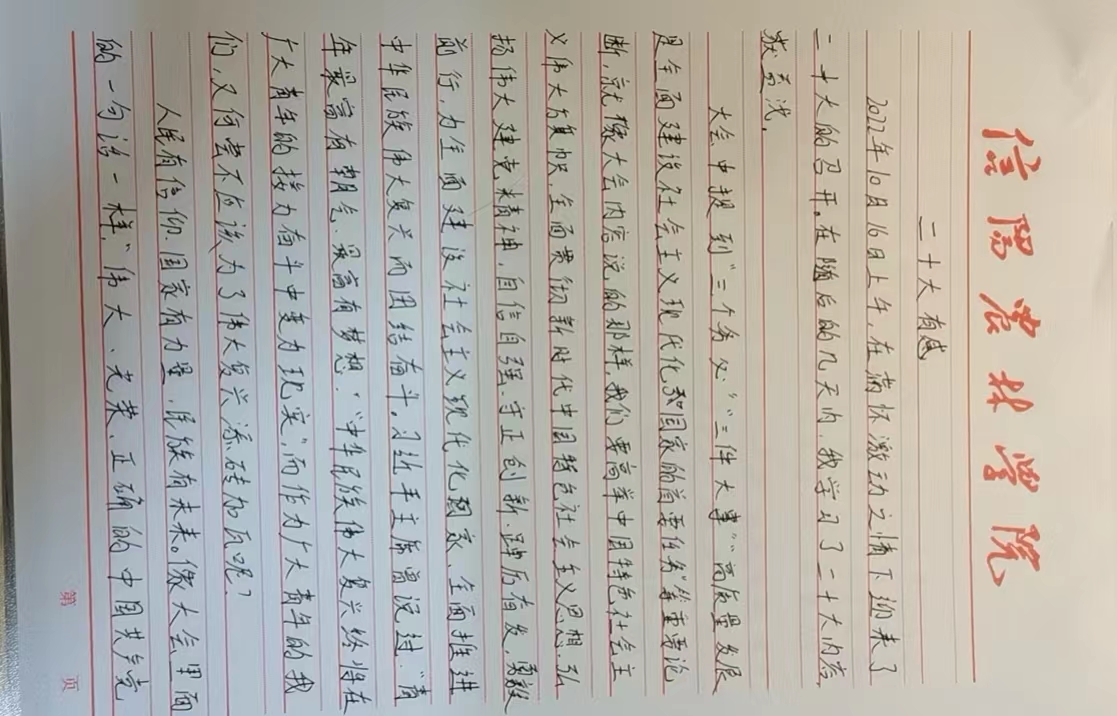 信阳农林学院
二十大有感
2022年10月16日上午,在满怀激动之情下迎来了
二十大的召开。在随后的几天内,我学习了二十大内容,
获益浅。
大会中提到“三个务必”“三件大事”“高质量发展
是全面建设社会主义现代化和国家的首要任务”等重要论
断,就像大会内容说的那样,我们要高举中国特色社会主
义伟大旗帜,全面贯彻新时代中国特色社会主义思想,弘
扬伟大建党精神,自信自强、守正创新,踔厉奋发、勇毅
前行,为全面建设社会主义现代化国家、全面推进
中华民族伟大复兴而团结奋斗。习近平主席曾说过:“青
年最富有朝气、最富有梦想,“中华民族伟大复兴终将在
广大青年的接力奋斗中变为现实”,而作为广大青年的我
们,又何尝不应该为了伟大复兴添砖加瓦呢?
人民有信仰,国家有力量,民族有未来。像大会里面
的一句话一样,“伟大、光荣、正确的中国共产党
第 页